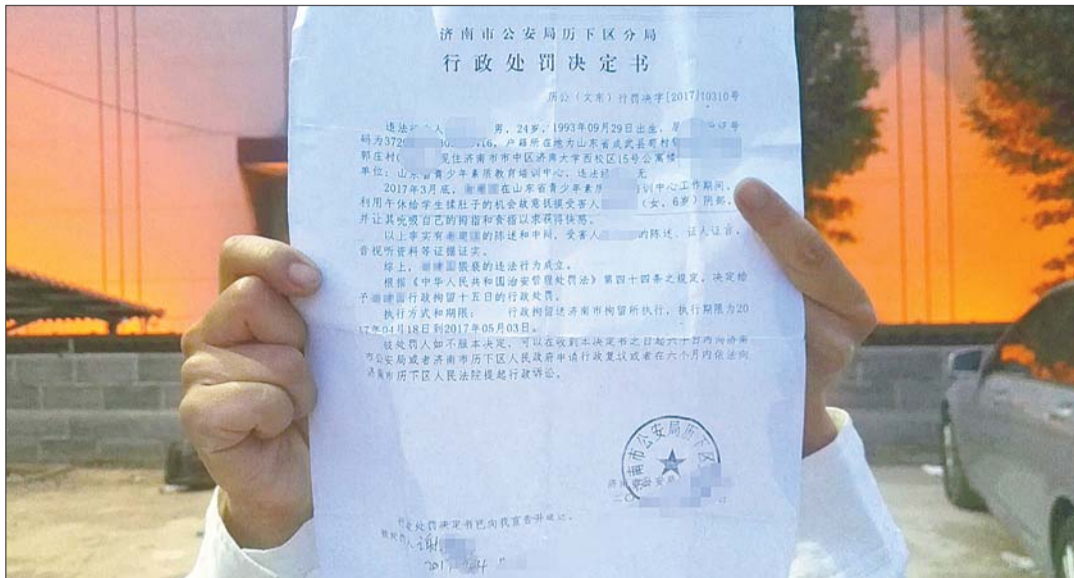 济南市公安局历下区分局
行政处罚决定书
历公（文东）行罚决字[2017]10310号
违法 人 男，24岁，1993年09月29日出生，居 证号
码为3729 16，户籍所在地为山东省成武县苟村
郭庄村 现住济南市市中区济南大学西校区15号公寓楼
单位：山东省青少年素质教育培训中心，违法经 无
2017年3月底， 在山东省青少年素质 培训中心工作期间，
利用午休给学生揉肚子的机会故意抚摸受害人 （女，6岁）阴部，
并让其吮吸自己的拇指和食指以求获得快感。
以上事实有 的陈述和申辩，受害人 的陈述、证人证言，
音视听资料等证据证实。
综上， 猥亵的违法行为成立。
根据《中华人民共和国治安管理处罚法》第四十四条之规定，决定给
予 行政拘留十五日的行政处罚。
执行方式和期限： 行政拘留送济南市拘留所执行，执行期限为20
17年04月18日到2017年05月03日。
被处罚人如不服本决定，可以在收到本决定书之日起六十日内向济南
市公安局或者济南市历下区人民政府申请行政复议或者在六个月内依法向
济南市历下区人民法院提起行政诉讼。
济南市公安局历下区
济南 公安局
二〇 日
行政处罚决定书已向我宣告并送达。
被处罚人 谢
201 4